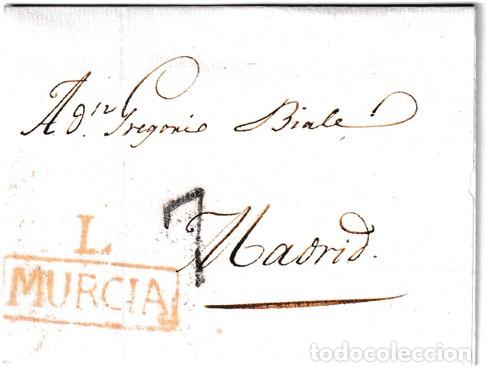 A d.n Gregorio Biale
7
Madrid.
L
MURCIA
todocoleccion